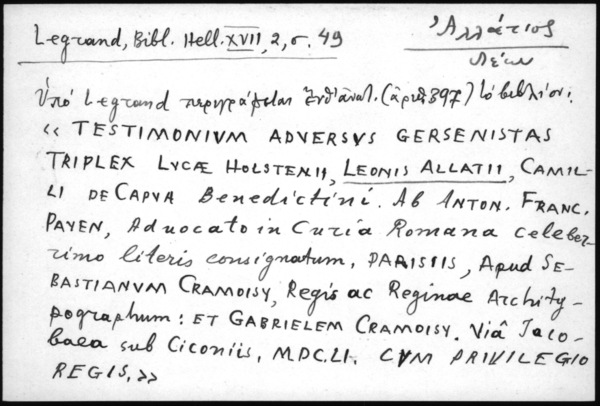 Legrand, Bibl. Hell. XVII, 2, σ. 49
Ἀλλάτιος
Λέων
Ὑπὸ Legrand περιγράφεται ἐνθ' ἀνωτ. (ἀριθ. 397) τὸ βιβλίον:
« TESTIMONIVM ADVERSVS GERSENISTAS
TRIPLEX LVCÆ HOLSTENII, LEONIS ALLATII, CAMIL-
LI DE CAPVA Benedictini. Ab ANTON. FRANC.
PAYEN, Aduocato in Curia Romana celeber-
rimo literis consignatum, PARISIIS, Apud SE-
BASTIANVM CRAMOISY, Regis ac Reginae Archity-
pographum: ET GABRIELEM CRAMOISY. Viâ Jaco-
baea sub Ciconiis, MDC.LI. CVM PRIVILEGIO
REGIS. »